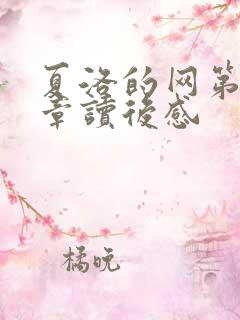 夏洛的网第
章讀後感
橘晚